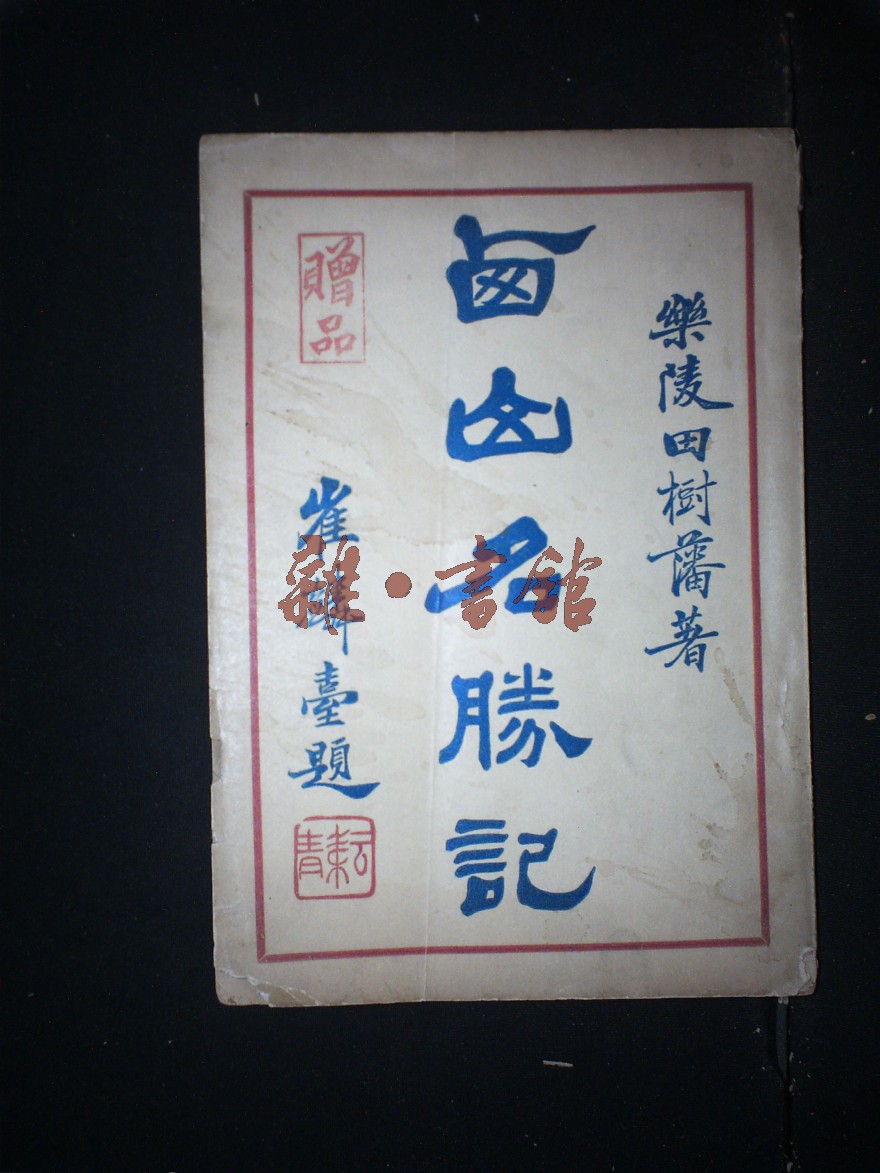 樂陵田樹藩著
西山名勝記
贈品
崔麟臺題
耘青
雜·書館